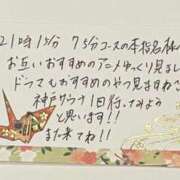 21時15分 75分コースの本指名様
お互いおすすめのアニメゆっくり見まし
ドラマもおすすめのやつ見ますね
神戸サウナ1日行ってみよう
と思います!!
また来てね!!